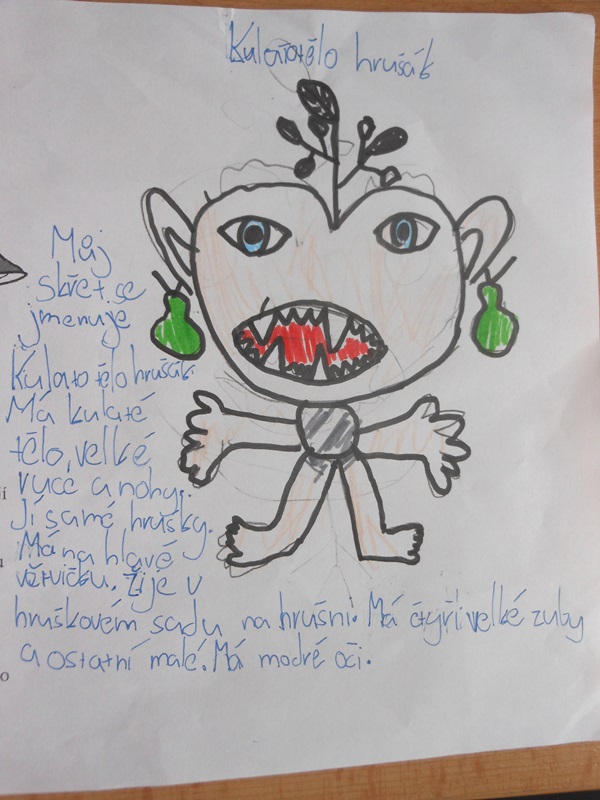 Kulatotělo hrušák
Můj
skřet se
jmenuje
Kulatotělo hrušák.
Má kulaté
tělo, velké
ruce a nohy.
Jí samé hrušky.
Má na hlavě
větvičku. Žije v
hruškovém sadu na hrušni. Má čtyři velké zuby
a ostatní malé. Má modré oči.